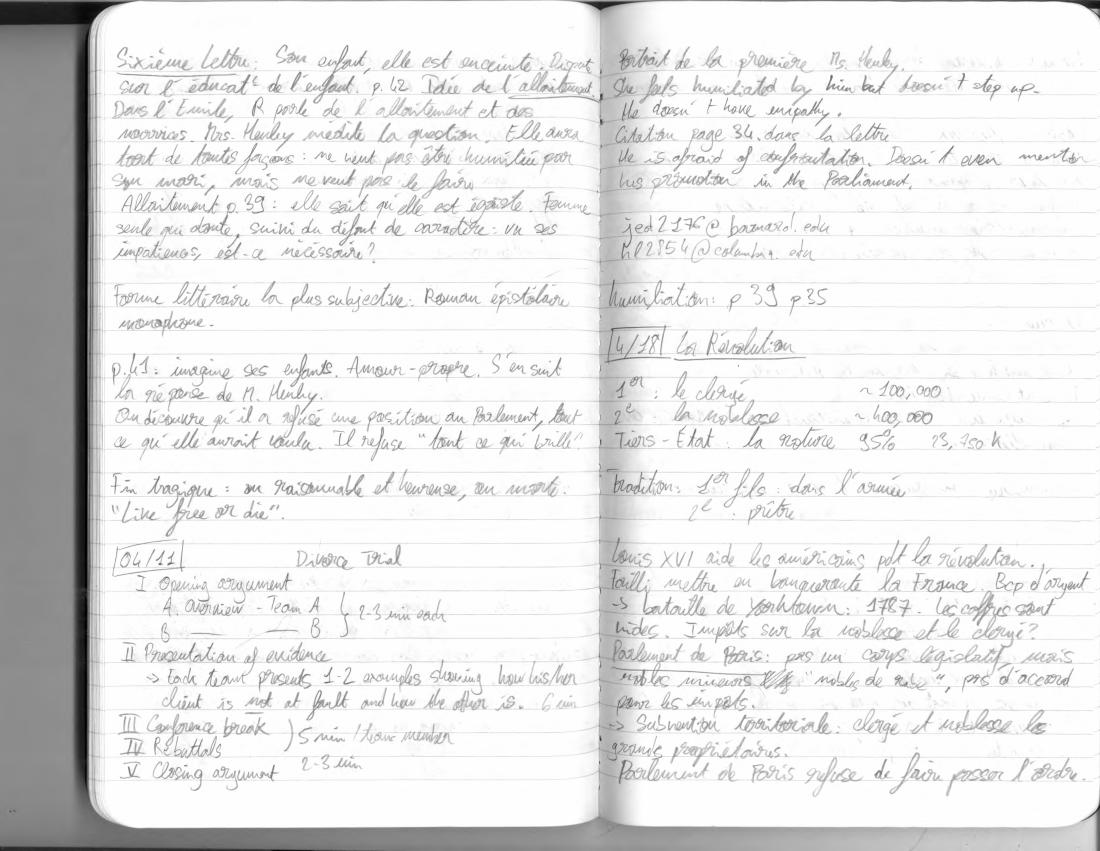 Sixième lettre: Son enfant, elle est enceinte. Dispute
sur l'éducat° de l'enfant. p. 42 Idée de l'allaitement.
Dans l'Emile, R parle de l'allaitement et des
nourrices. Mrs. Henley médite la question. Elle aura
tort de toutes façons: ne veut pas être humiliée par
son mari, mais ne veut pas le faire
Allaitement p.39: elle sait qu'elle est égoïste. Femme
seule qui doute, suivi du défaut de caractère: vu ses
impatiences, est-ce nécessaire?
Forme littéraire la plus subjective: Roman épistolaire
monophone.
p.41: imagine ses enfants. Amour-propre. S'en suit
la réponse de M. Henley.
On découvre qu'il a refusé une position au Parlement, tout
ce qu'elle aurait voulu. Il refuse "tout ce qui brille".
Fin tragique: ou raisonnable et heureuse, ou morte.
"Live free or die".
04/11 Divorce Trial
I Opening argument
A. overview - Team A } 2-3 min each
B — — B
II Presentation of evidence
-> Each team presents 1-2 examples showing how his/her
client is not at fault and how the other is. 6 min
III Conference break
IV Rebuttals ) 5 min / team member
V Closing argument 2-3 min
Portrait de la première Ms. Henley.
She feels humiliated by him but doesn't step up.
He doesn't have empathy.
Citation page 34. dans la lettre
He is afraid of confrontation. Doesn't even mention
his promotion in the Parliament.
jed2176@barnard.edu
@columbia.edu
humiliation: p 39 p35
4/18 La Révolution
1er : le clergé ~ 100,000
2e : la noblesse ~ 400,000
Tiers-Etat: la roture 95% 23,750 K
tradition: 1er fils: dans l'armée
2e : prêtre
Louis XVI aide les américains pdt la révolution.
failli mettre en banqueroute la France. Bcp d'argent
-> bataille de Yorktown: 1787. Les coffres sont
vides. Impôts sur la noblesse et le clergé?
Parlement de Paris: pas un corps législatif, mais
nobles mineurs "nobles de robe", pas d'accord
pour les impôts.
-> Subvention territoriale: clergé et noblesse les
grands propriétaires.
Parlement de Paris refuse de faire passer l'ordre.